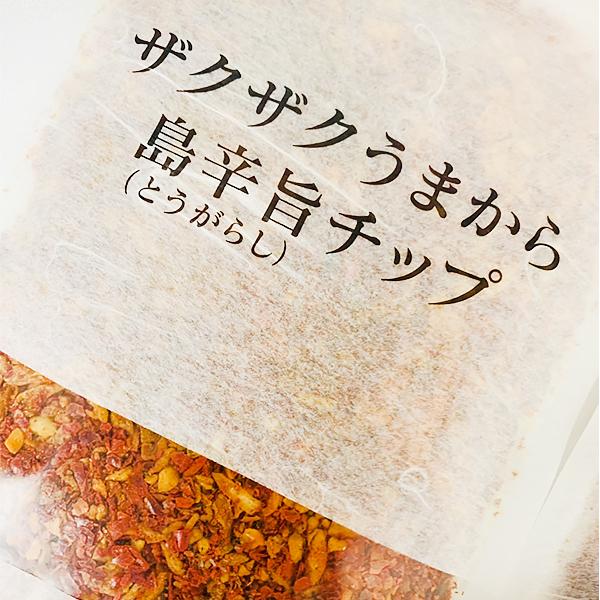 ザクザクうまから
島辛旨チップ
(とうがらし)